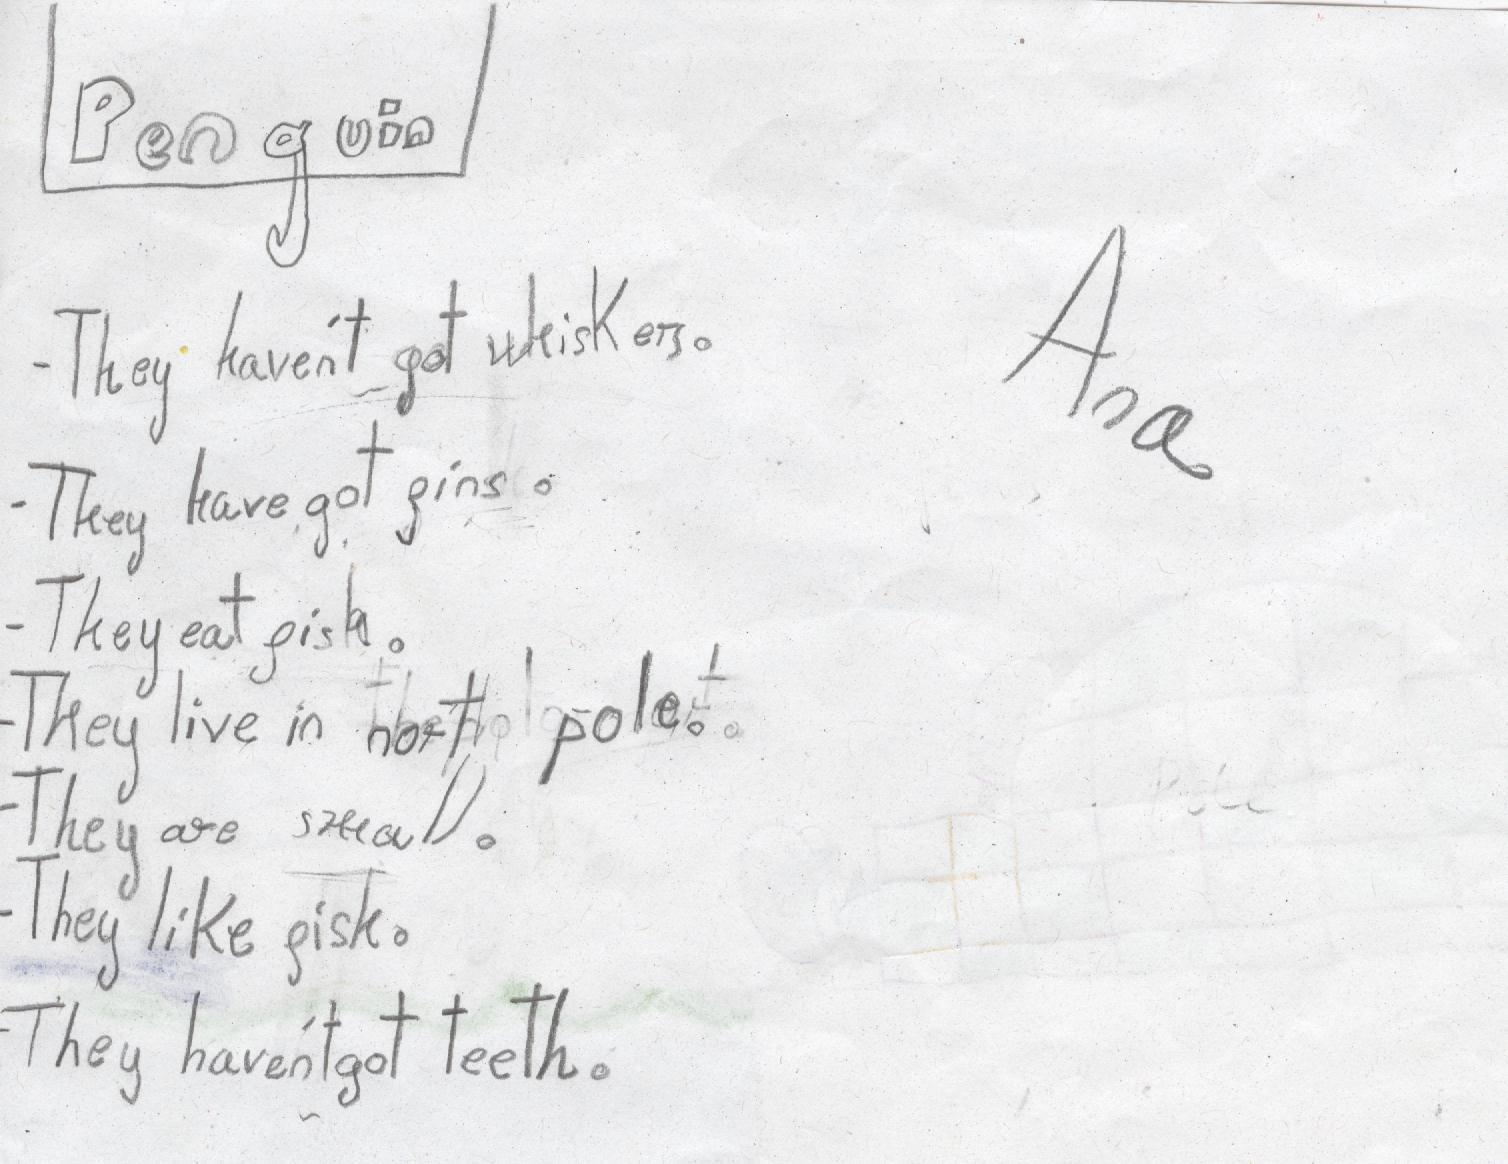 Penguin
Ana
- They haven't got whiskers.
- They have got fins.
- They eat fish.
- They live in nort pole.
- They are small.
- They like fish.
- They haven't got teeth.